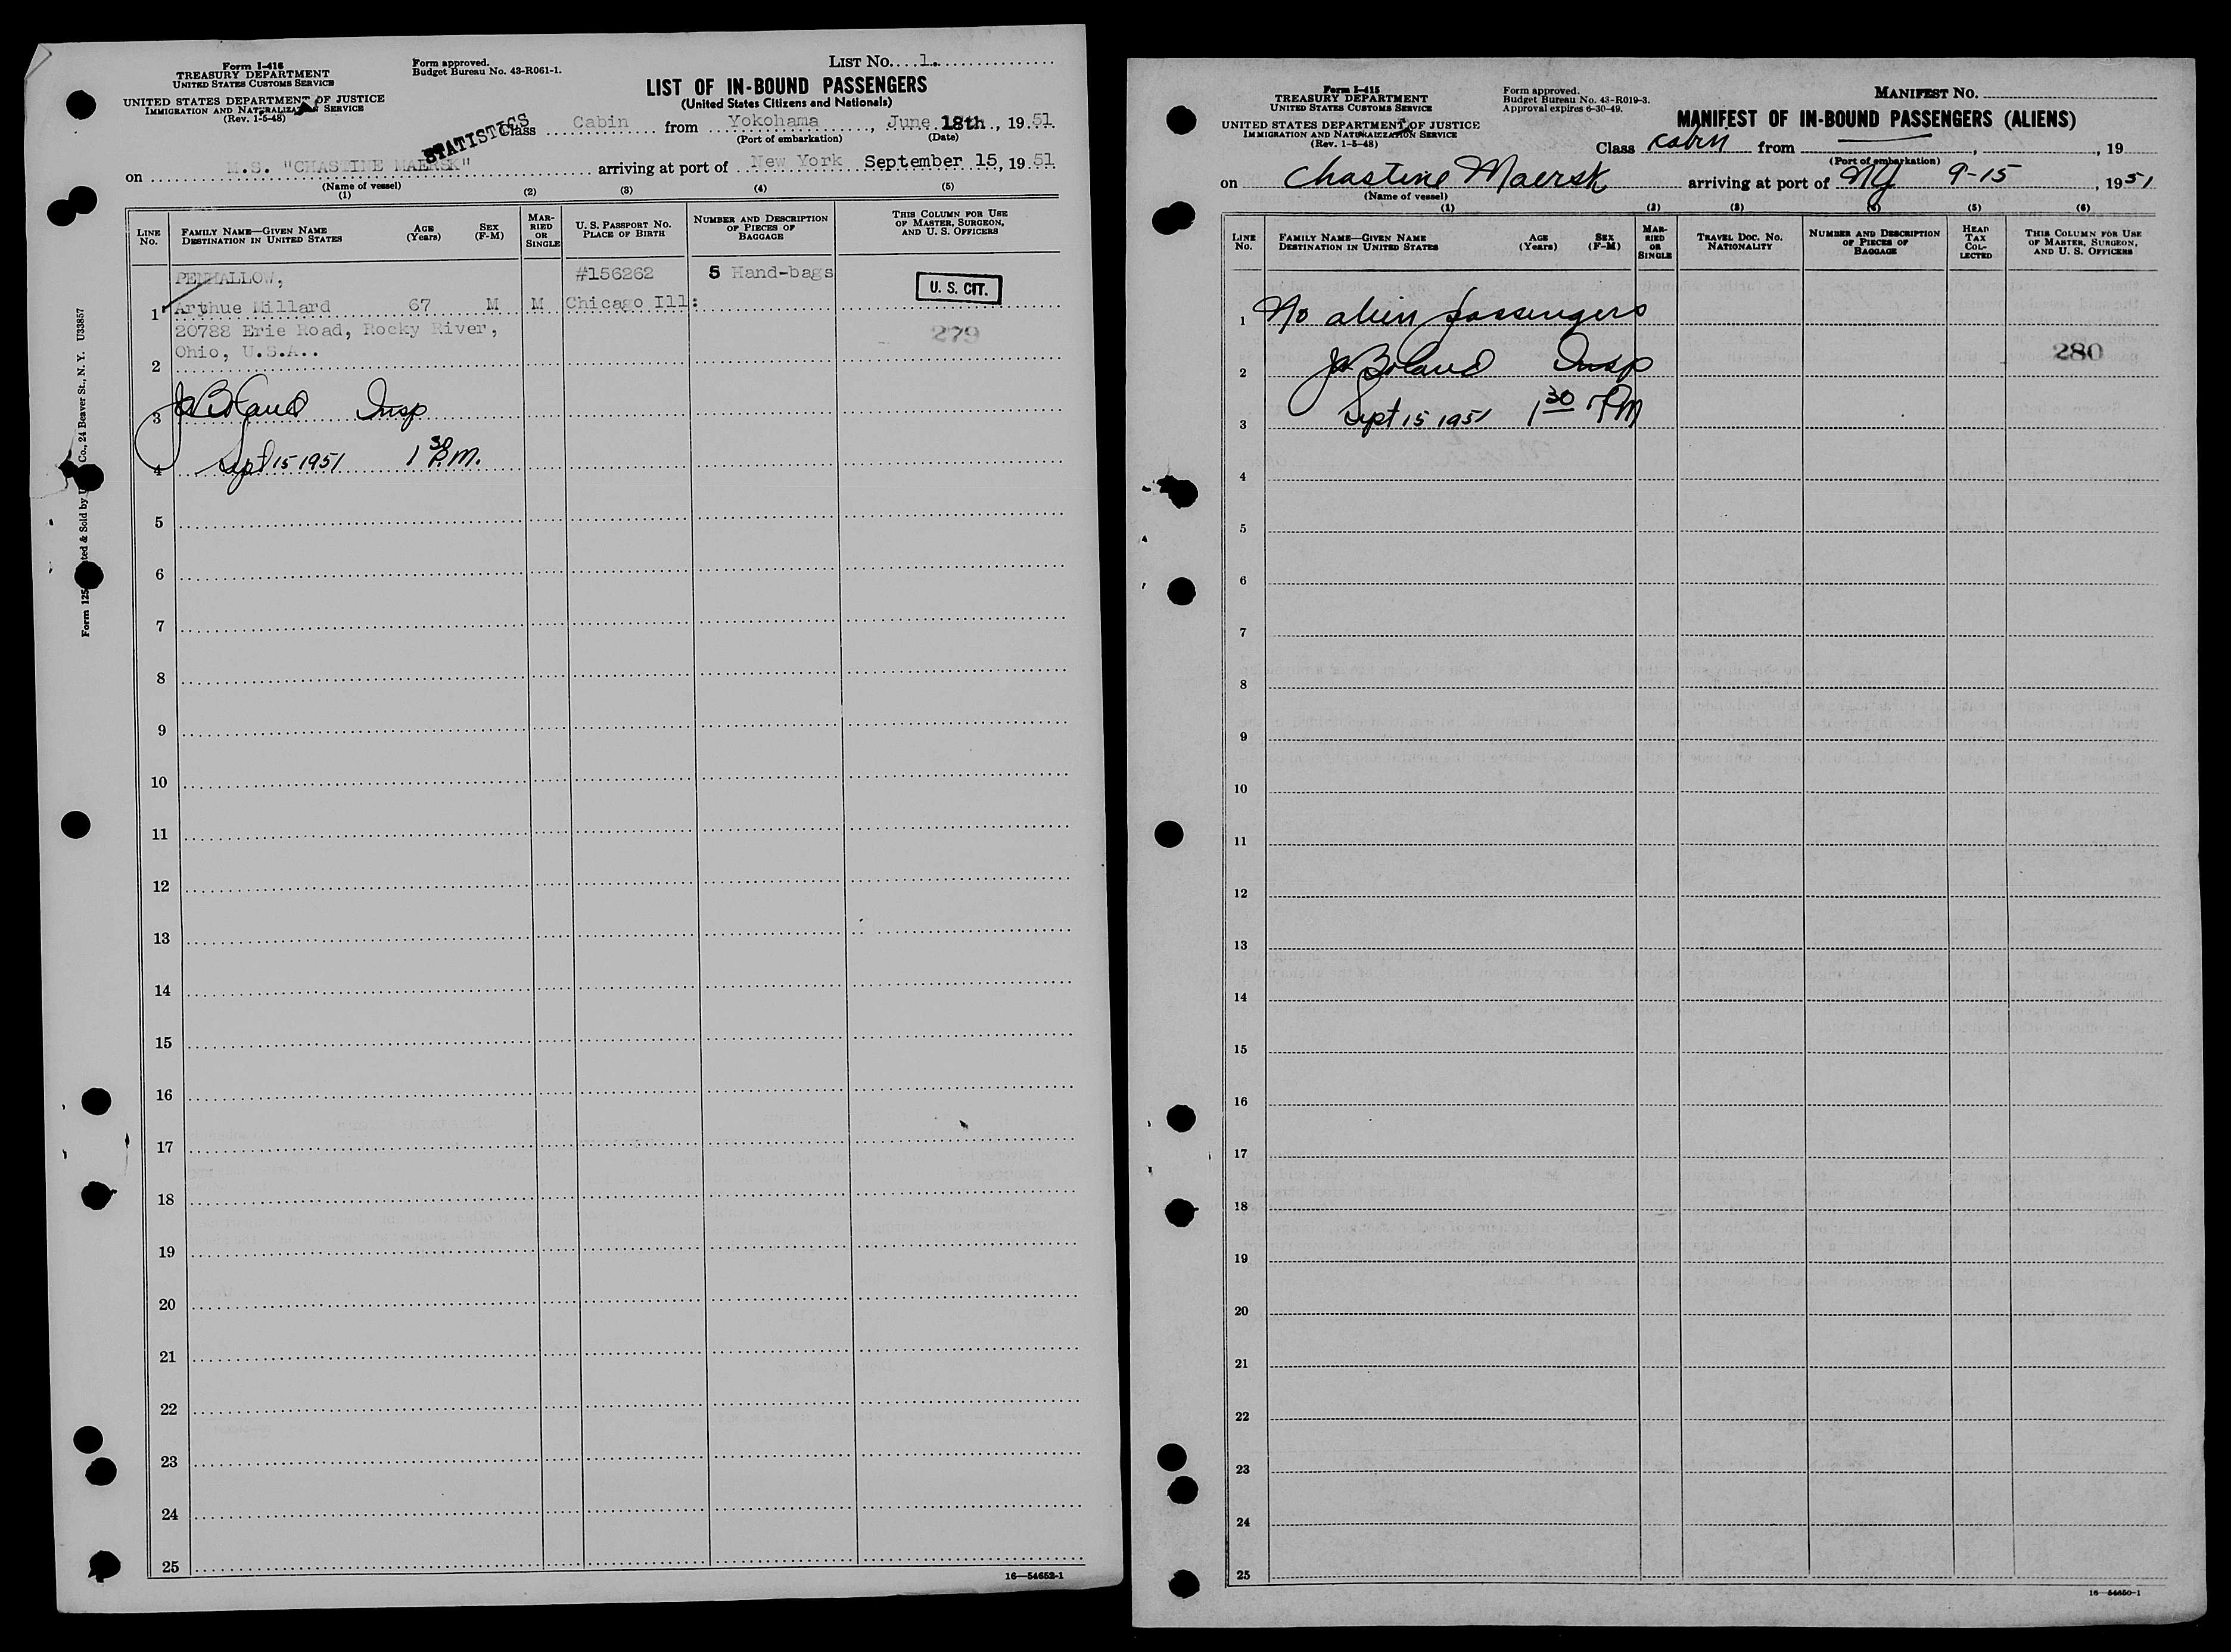 Form I-416
TREASURY DEPARTMENT
UNITED STATES CUSTOMS SERVICE
UNITED STATES DEPARTMENT OF JUSTICE
IMMIGRATION AND NATURALIZATION SERVICE
(Rev. 1-5-48)
Form approved.
Budget Bureau No. 43-R061-1.
LIST NO. 1.
LIST OF IN-BOUND PASSENGERS
(United States Citizens and Nationals)
STATISTICS
Class Cabin from Yokohama, June 18th, 1951
(Port of embarkation) (Date)
on M.S. "CHASTINE MAERSK" arriving at port of New York September 15, 1951
(Name of vessel)
(1) (2) (3) (4) (5)
LINE NO.
FAMILY NAME—GIVEN NAME
DESTINATION IN UNITED STATES
AGE (Years)
SEX (F-M)
MARRIED OR SINGLE
U. S. PASSPORT NO.
PLACE OF BIRTH
NUMBER AND DESCRIPTION OF PIECES OF BAGGAGE
THIS COLUMN FOR USE OF MASTER, SURGEON, AND U. S. OFFICERS
PENHALLOW, #156262 5 Hand-bags
U. S. CIT.
1 Arthue Millard 67 M M Chicago Ill:
20788 Erie Road, Rocky River, 279
2 Ohio, U.S.A..
3 Boland Insp
4 Sept 15 1951 1 30 P.M.
5
6
7
8
9
10
11
12
13
14
15
16
17
18
19
20
21
22
23
24
25
16—54652-1
Co., 24 Beaver St., N. Y. U33857
Form 125 ted & Sold by
Form I-415
TREASURY DEPARTMENT
UNITED STATES CUSTOMS SERVICE
UNITED STATES DEPARTMENT OF JUSTICE
IMMIGRATION AND NATURALIZATION SERVICE
(Rev. 1-5-48)
Form approved.
Budget Bureau No. 43-R019-3.
Approval expires 6-30-49.
MANIFEST NO.
MANIFEST OF IN-BOUND PASSENGERS (ALIENS)
Class cabin from , , 19
(Port of embarkation)
on Chastine Maersk arriving at port of NY 9-15, 1951
(Name of vessel)
(1) (2) (3) (4) (5) (6)
LINE NO.
FAMILY NAME—GIVEN NAME
DESTINATION IN UNITED STATES
AGE (Years)
SEX (F-M)
MARRIED OR SINGLE
TRAVEL DOC. NO.
NATIONALITY
NUMBER AND DESCRIPTION OF PIECES OF BAGGAGE
HEAD TAX COLLECTED
THIS COLUMN FOR USE OF MASTER, SURGEON, AND U. S. OFFICERS
1 No alien passengers
280
2 Boland Insp
3 Sept 15 1951 1 30 PM
4
5
6
7
8
9
10
11
12
13
14
15
16
17
18
19
20
21
22
23
24
25
16—54650-1